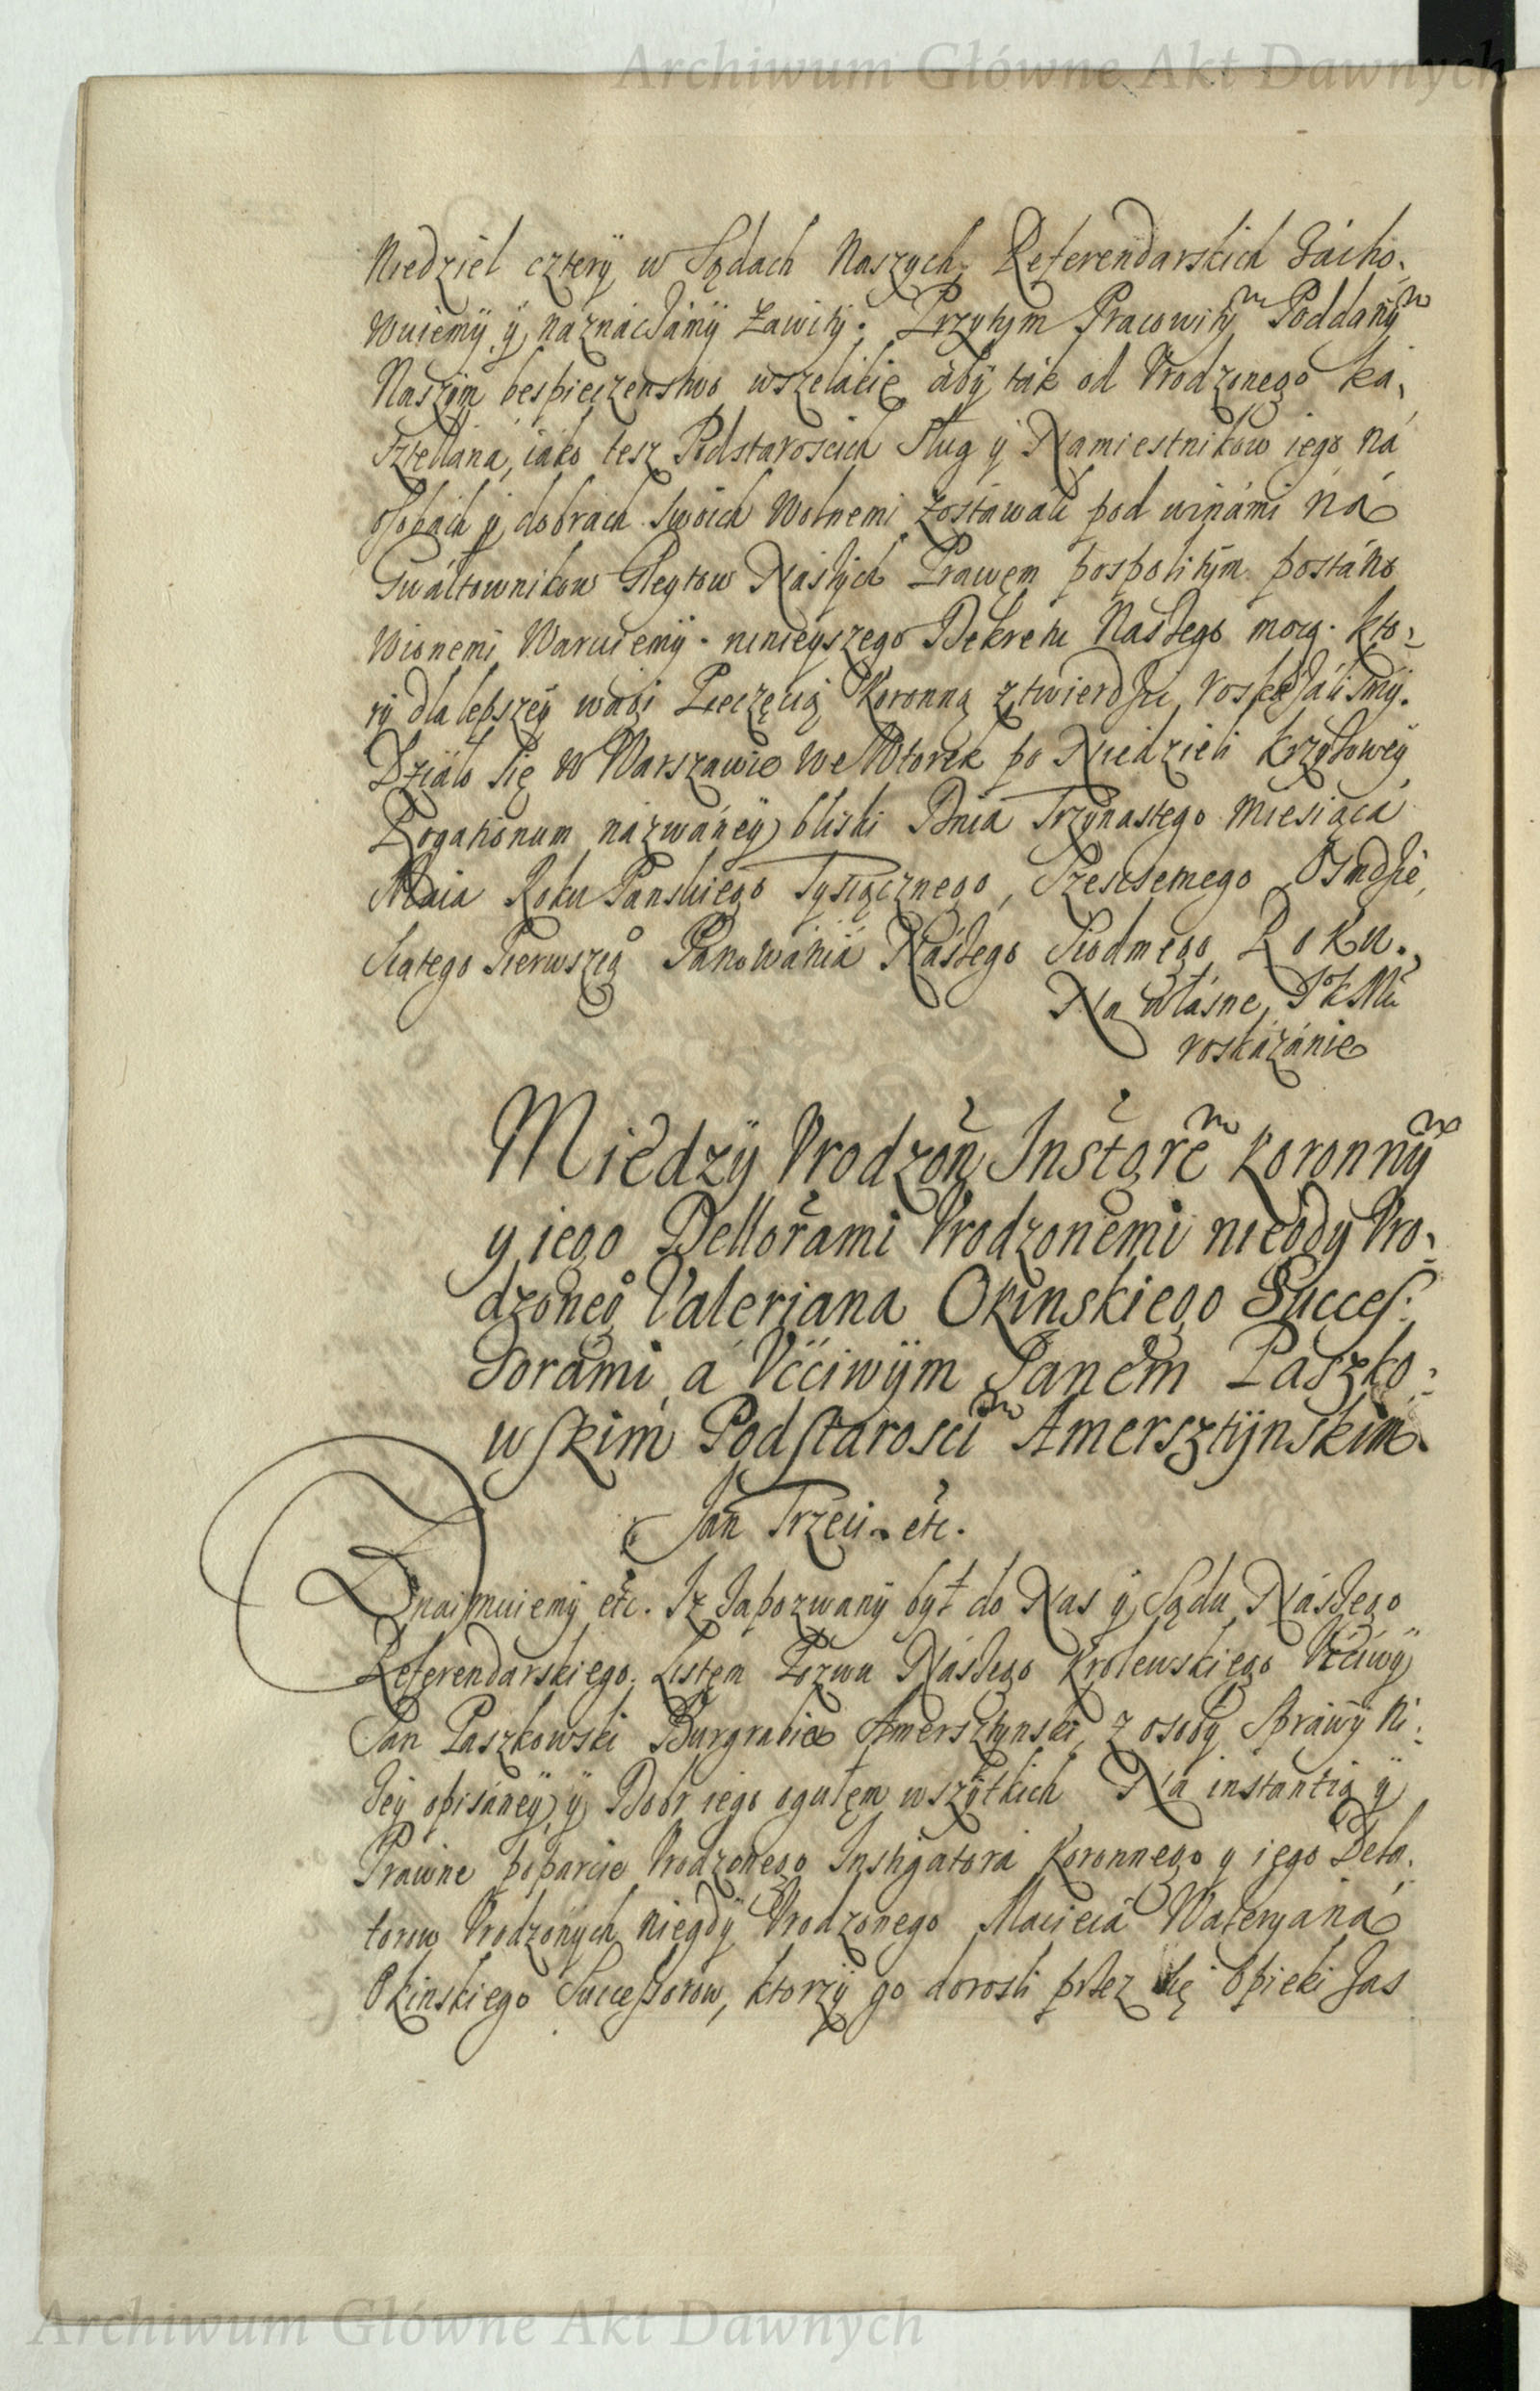 Archiwum Główne Akt Dawnych
Niedziel cztery w Sądach Naszych Referendarskich Zácho,
wuiemÿ ÿ náznáczámÿ Zawitÿ. Przytym Pracowitÿm Poddanÿm
Naszÿm bespieczenstwo wszelákie ábÿ ták od Vrodzonego ka,
sztellána, iáko tesz Podstaroscich Sług ÿ Namiestnikow iego ná
osobách ÿ dobrach swoich Wolnemi zostáwáli pod winámi ná
Gwáłtownikow Gleytow Nászÿch Práwem pospolitÿm postáno
wionemi Waruiemÿ. ninieyszego Dekretu Nászego mocą. kto:
rÿ dla lepszeÿ wági Pieczęcią Koronną ztwierdzić roskazálismÿ.
Działo się w Warszawie we Wtorek po Niedzieli krzÿzoweÿ
Rogationum názwáneÿ) bliski Dniá Trzÿnastego Miesiąca
Maia Roku Panskiego Tysiącznego, Szescsetnego Osmdzie,
siątego Pierwszeg° Pánowániá Nászego Siodmego Roku.
Na własne J° K Mci
roskázánie
Miedzÿ Vrodzon̄ Instgrem̄ koronnÿm
y iego Dellorami Vrodzonemi niegdy Vro:
dzoneg° Valeriana Okinskiego Succes:
sorámi á Vććiwÿm Janem Paszko:
wskim Podstaroscim Amersztÿnskim.
Jan Trzeci. etc.
Znaimuiemÿ etc. Iz zapozwanÿ był do Nas ÿ Sądu Nászego
Referendarskiego. Listem Pozwu Nászego Krolewskiego Vććiwÿ
Jan Paszkowski Burgrabia Amersztynski, z osobÿ Sprawÿ ni:
zeÿ opisáneÿ, ÿ Dobr iego ogułem wszÿtkich Ná instantią ÿ
Práwne popárcie Vrodzonego Instigatorá Koronnego y iego Dela,
torow Vrodzonych niegdÿ Vrodzonego Macieiá Waleryáná
Okinskiego Successorow, ktorzÿ go dorosli przez się Opieki zas
Archiwum Główne Akt Dawnych